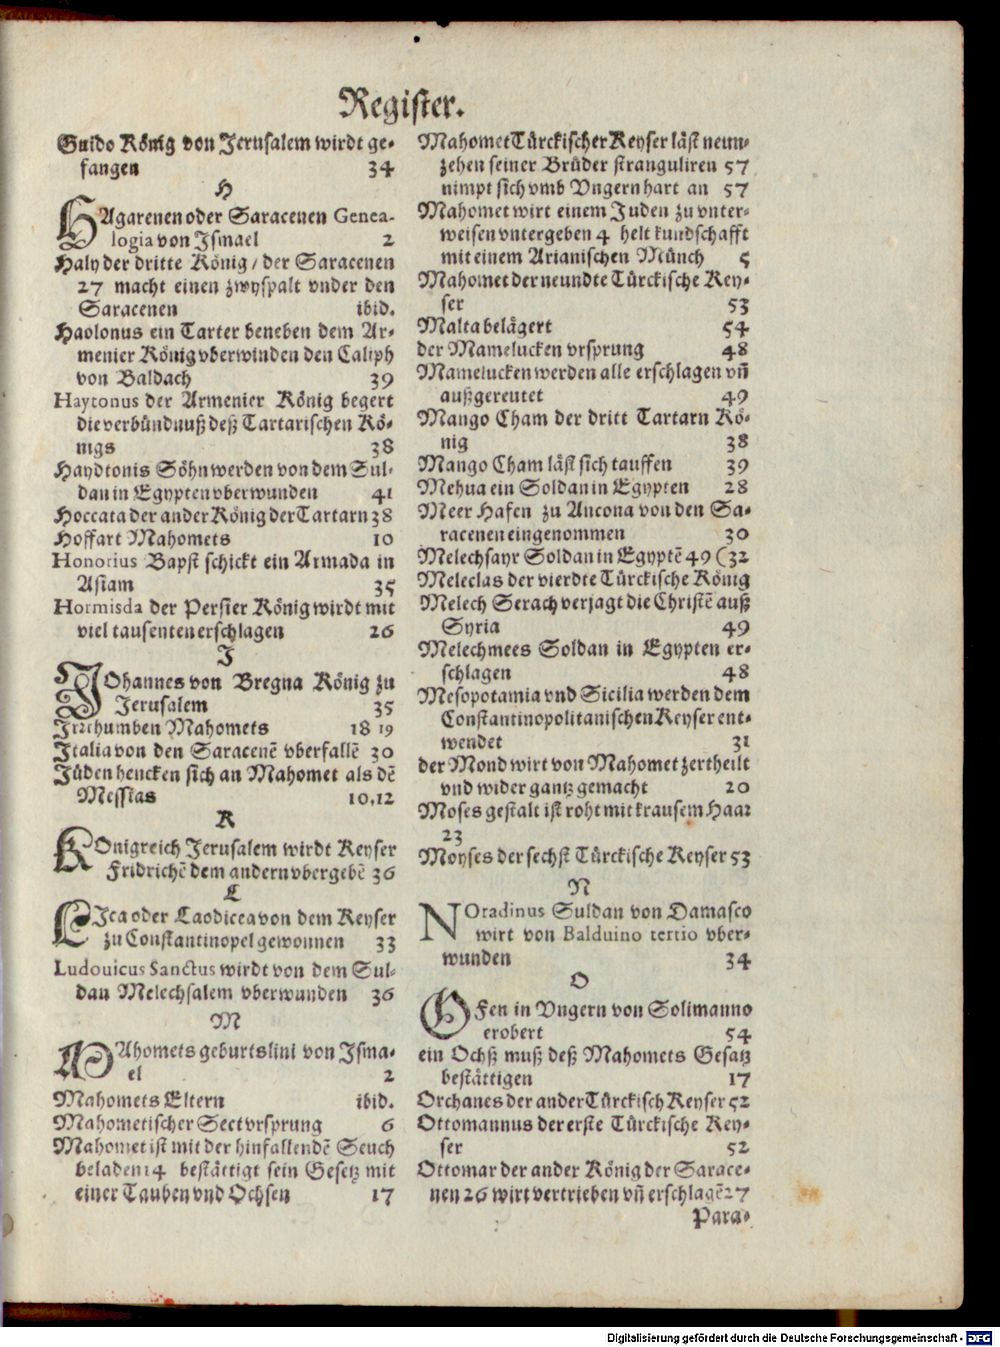 Register.
Guido König von Jerusalem wirdt ge-
fangen 34
H
HAgarenen oder Saracenen Genea-
logia von Ismael 2
Haly der dritte König / der Saracenen
27 macht einen zwyspalt vnder den
Saracenen ibid.
Haolonus ein Tarter beneben dem Ar-
menier König vberwinden den Caliph
von Baldach 39
Haytonus der Armenier König begert
die verbündnuß deß Tartarischen Kö-
nigs 38
Haydtonis Söhn werden von dem Sul-
dan in Egypten vberwunden 41
Hoccata der ander König der Tartarn 38
Hoffart Mahomets 10
Honorius Bapst schickt ein Armada in
Asiam 35
Hormisda der Persier König wirdt mit
viel tausenten erschlagen 26
J
JOhannes von Bregna König zu
Jerusalem 35
Jrrthumben Mahomets 18 19
Jtalia von den Saracenẽ vberfallẽ 30
Jüden hencken sich an Mahomet als dẽ
Messias 10.12
K
KOnigreich Jerusalem wirdt Keyser
Fridrichẽ dem andern vbergebẽ 36
L
LIca oder Laodicea von dem Keyser
zu Constantinopel gewonnen 33
Ludouicus Sanctus wirdt von dem Sul-
dan Melechsalem vberwunden 36
M
MAhomets geburtslini von Jsma-
el 2
Mahomets Eltern ibid.
Mahometischer Sect vrsprung 6
Mahomet ist mit der hinfallendẽ Seuch
beladen 14 bestättigt sein Gesetz mit
einer Tauben vnd Ochsen 17
Mahomet Türckischer Keyser läst neun-
zehen seiner Brüder stranguliren 57
nimpt sich vmb Vngern hart an 57
Mahomet wirt einem Juden zu vnter-
weisen vntergeben 4 helt kundschafft
mit einem Arianischen Münch 5
Mahomet der neundte Türckische Key-
ser 53
Malta belägert 54
der Mamelucken vrsprung 48
Mamelucken werden alle erschlagen vñ
außgereutet 49
Mango Cham der dritt Tartarn Kö-
nig 38
Mango Cham läst sich tauffen 39
Mehua ein Soldan in Egypten 28
Meer Hafen zu Ancona von den Sa-
racenen eingenommen 30
Melechsayr Soldan in Egyptẽ 49 (32
Meleclas der vierdte Türckische König
Melech Serach verjagt die Christẽ auß
Syria 49
Melechmees Soldan in Egypten er-
schlagen 48
Mesopotamia vnd Sicilia werden dem
Constantinopolitanischen Keyser ent-
wendet 31
der Mond wirt von Mahomet zertheilt
vnd wider gantz gemacht 20
Moses gestalt ist roht mit krausem Haar
23
Moyses der sechst Türckische Keyser 53
N
NOradinus Suldan von Damasco
wirt von Balduino tertio vber-
wunden 34
O
OFen in Vngern von Solimanno
erobert 54
ein Ochß muß deß Mahomets Gesatz
bestättigen 17
Orchanes der ander Türckisch Keyser 52
Ottomannus der erste Türckische Key-
ser 52
Ottomar der ander König der Sarace-
nen 26 wirt vertrieben vñ erschlagẽ 27
Para-
Digitalisierung gefördert durch die Deutsche Forschungsgemeinschaft - DFG